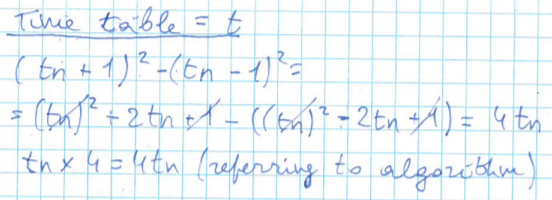 Time table = t
(tn + 1)² - (tn - 1)² =
= (tn)² + 2tn + 1 - ((tn)² - 2tn + 1) = 4tn
tn × 4 = 4tn (referring to algorithm)